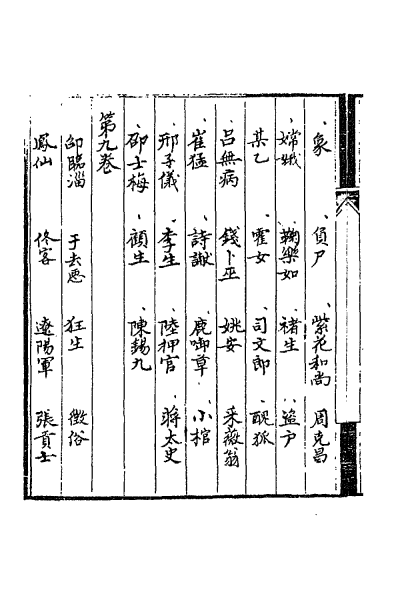 象 負尸 紫花和尚 周克昌
嫦娥 鞠樂如 褚生 盜户
某乙 霍女 司文郎 醜狐
吕無病 錢卜巫 姚安 采薇翁
崔猛 詩讞 鹿啣草 小棺
邢子儀 李生 陸押官 蔣太史
邵士梅 顧生 陳錫九
第九卷
邵臨淄 于去惡 狂生 徵俗
鳳仙 佟客 遼陽軍 張貢士